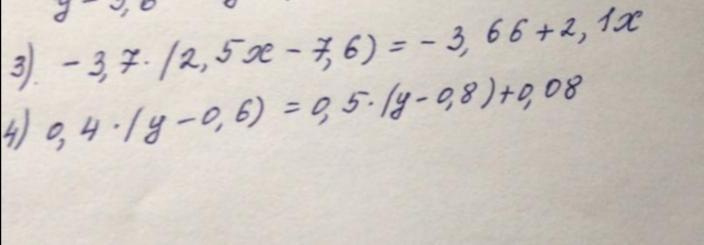 3) -3,7·(2,5x-7,6)=-3,66+2,1x
4) 0,4·(y-0,6)=0,5·(y-0,8)+0,08